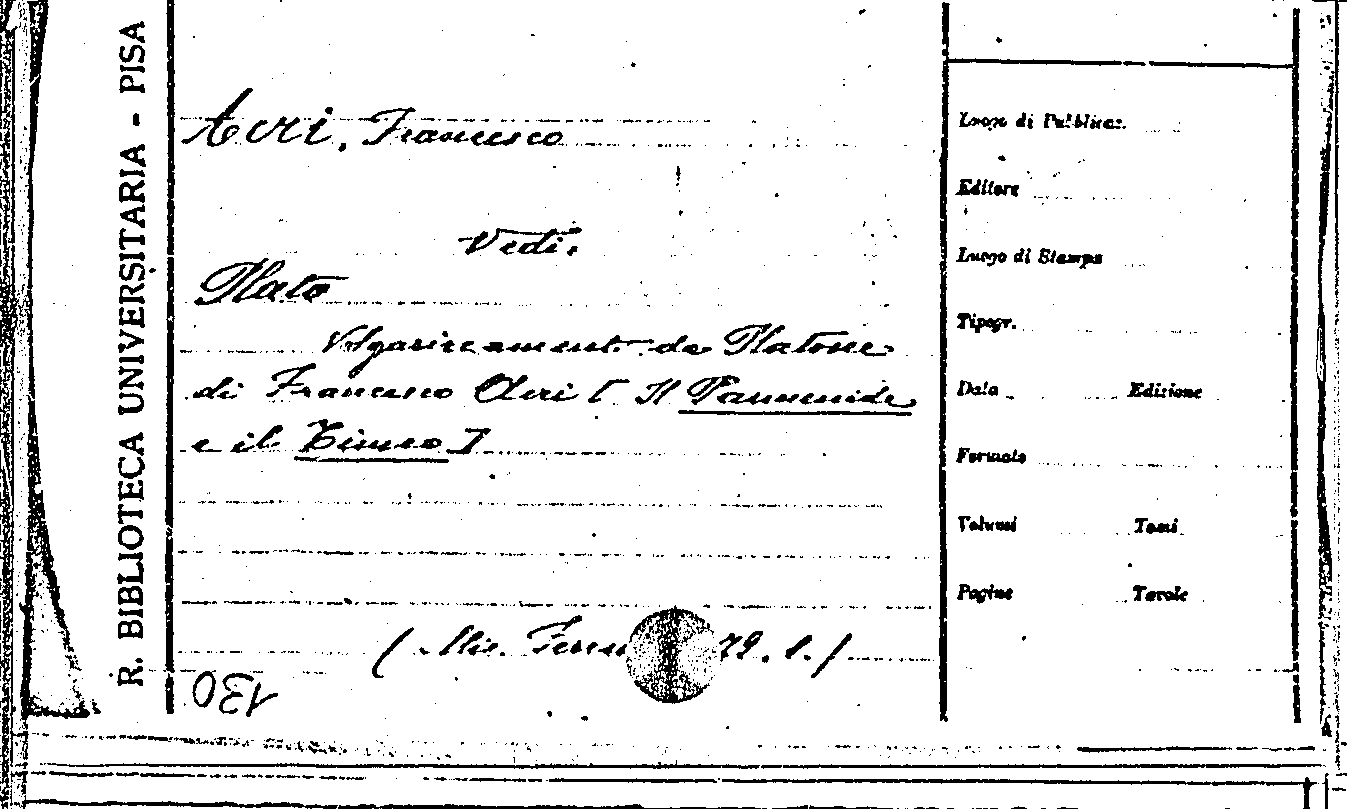 R. BIBLIOTECA UNIVERSITARIA - PISA
Acri, Francesco
Vedi.
Plato
Volgarizzamenti da Platone
di Francesco Acri [ Il Parmenide
e il Timeo ]
( Mis. 79. 1. )
130
Luogo di Pubblicaz.
Editore
Luogo di Stampa
Tipogr.
Data Edizione
Formato
Volumi Tomi
Pagine Tavole